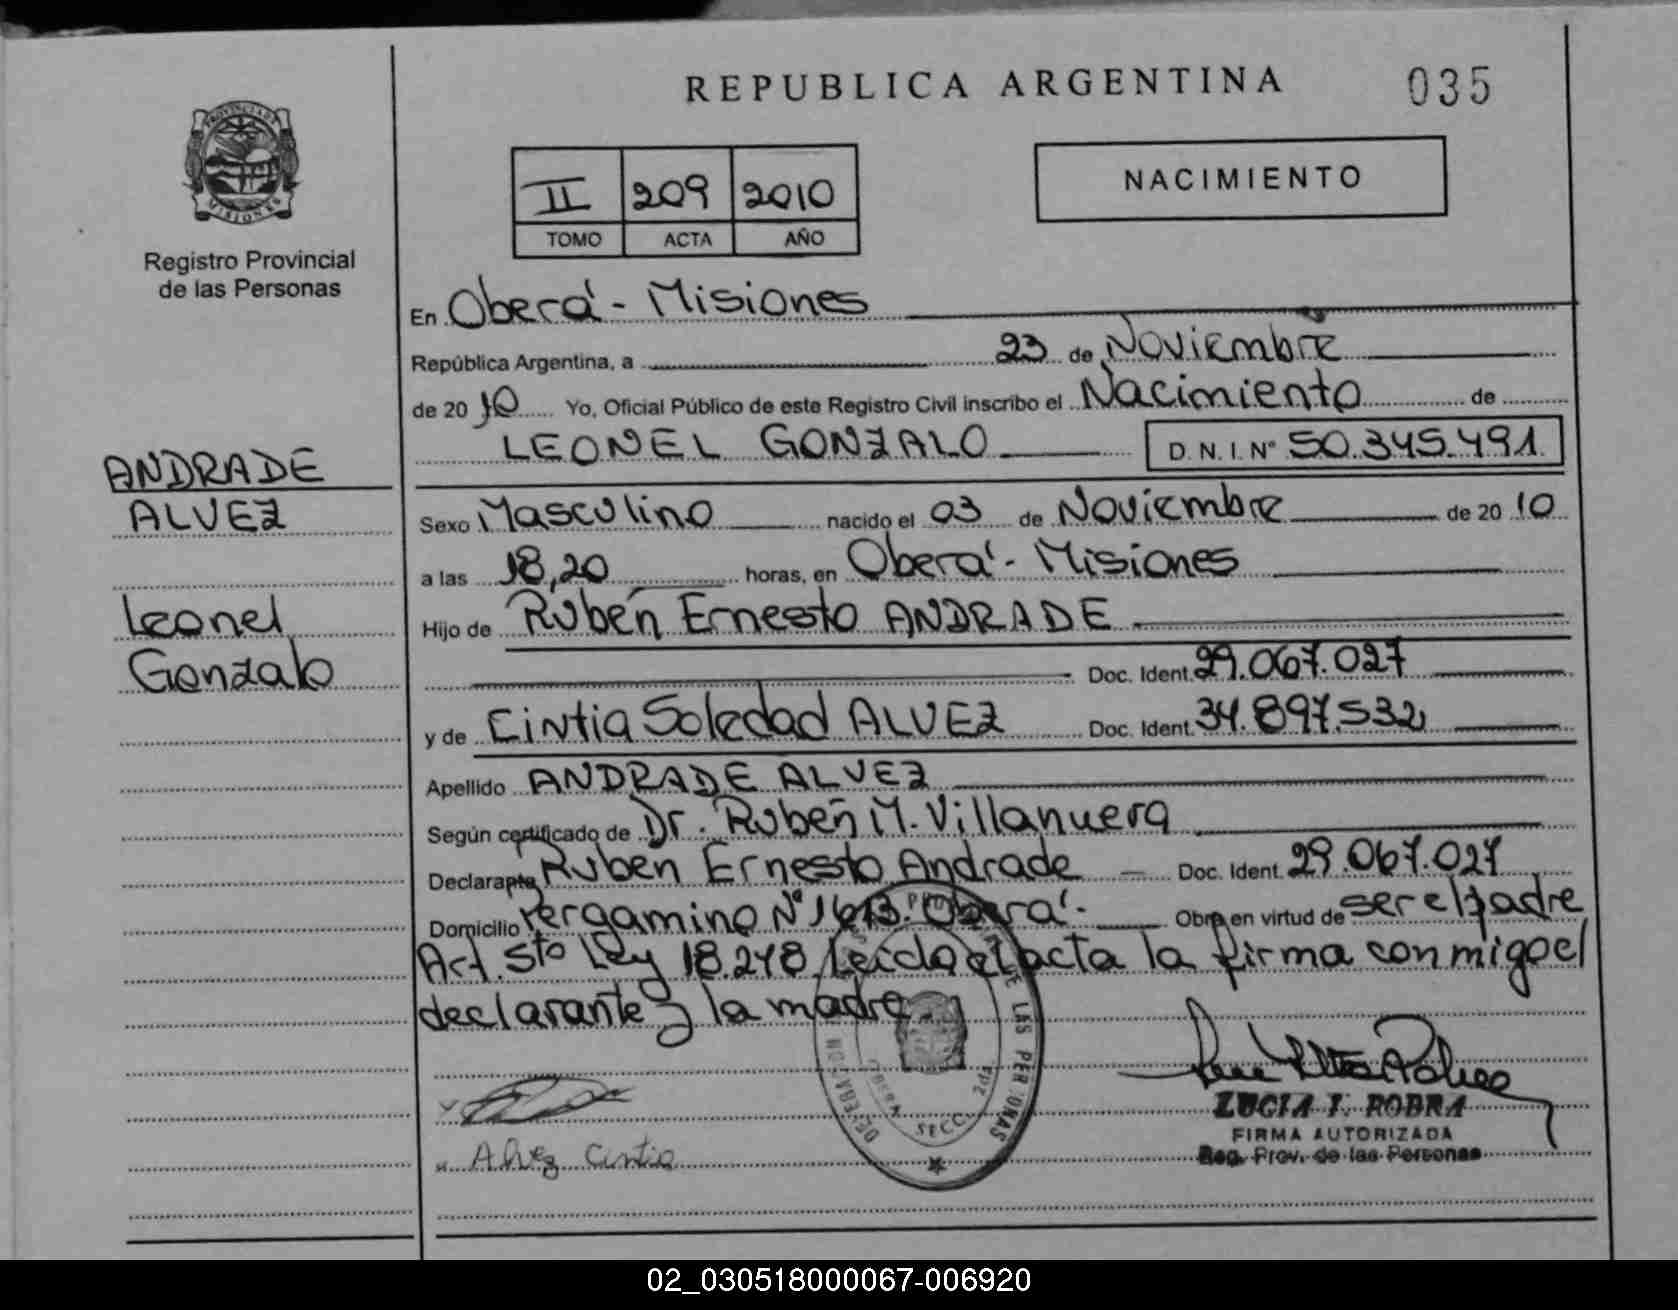 REPUBLICA ARGENTINA
035
PROVINCIA DE
MISIONES
Registro Provincial
de las Personas
II 209 2010
TOMO ACTA AÑO
NACIMIENTO
En Oberá - Misiones
República Argentina, a 23 de Noviembre
de 2010 Yo, Oficial Público de este Registro Civil inscribo el Nacimiento de
LEONEL GONZALO D.N.I. Nº 50.345.491
ANDRADE
ALVEZ
Leonel
Gonzalo
Sexo Masculino nacido el 03 de Noviembre de 2010
a las 18,20 horas, en Oberá - Misiones
Hijo de Rubén Ernesto ANDRADE
Doc. Ident. 29.067.027
y de Cintia Soledad ALVEZ Doc. Ident. 34.897.532
Apellido ANDRADE ALVEZ
Según certificado de Dr. Rubén M. Villanueva
Declarante Ruben Ernesto Andrade Doc. Ident. 29.067.027
Domicilio Pergamino Nº 1613. Oberá. Obra en virtud de ser el padre
Art. 5to Ley 18.248. Leida el acta la firma conmigo el
declarante y la madre.
DE LAS PERSONAS
SECC. 2da.
Alvez Cintia
LUCIA I. ROBRA
FIRMA AUTORIZADA
Reg. Prov. de las Personas
02_030518000067-006920